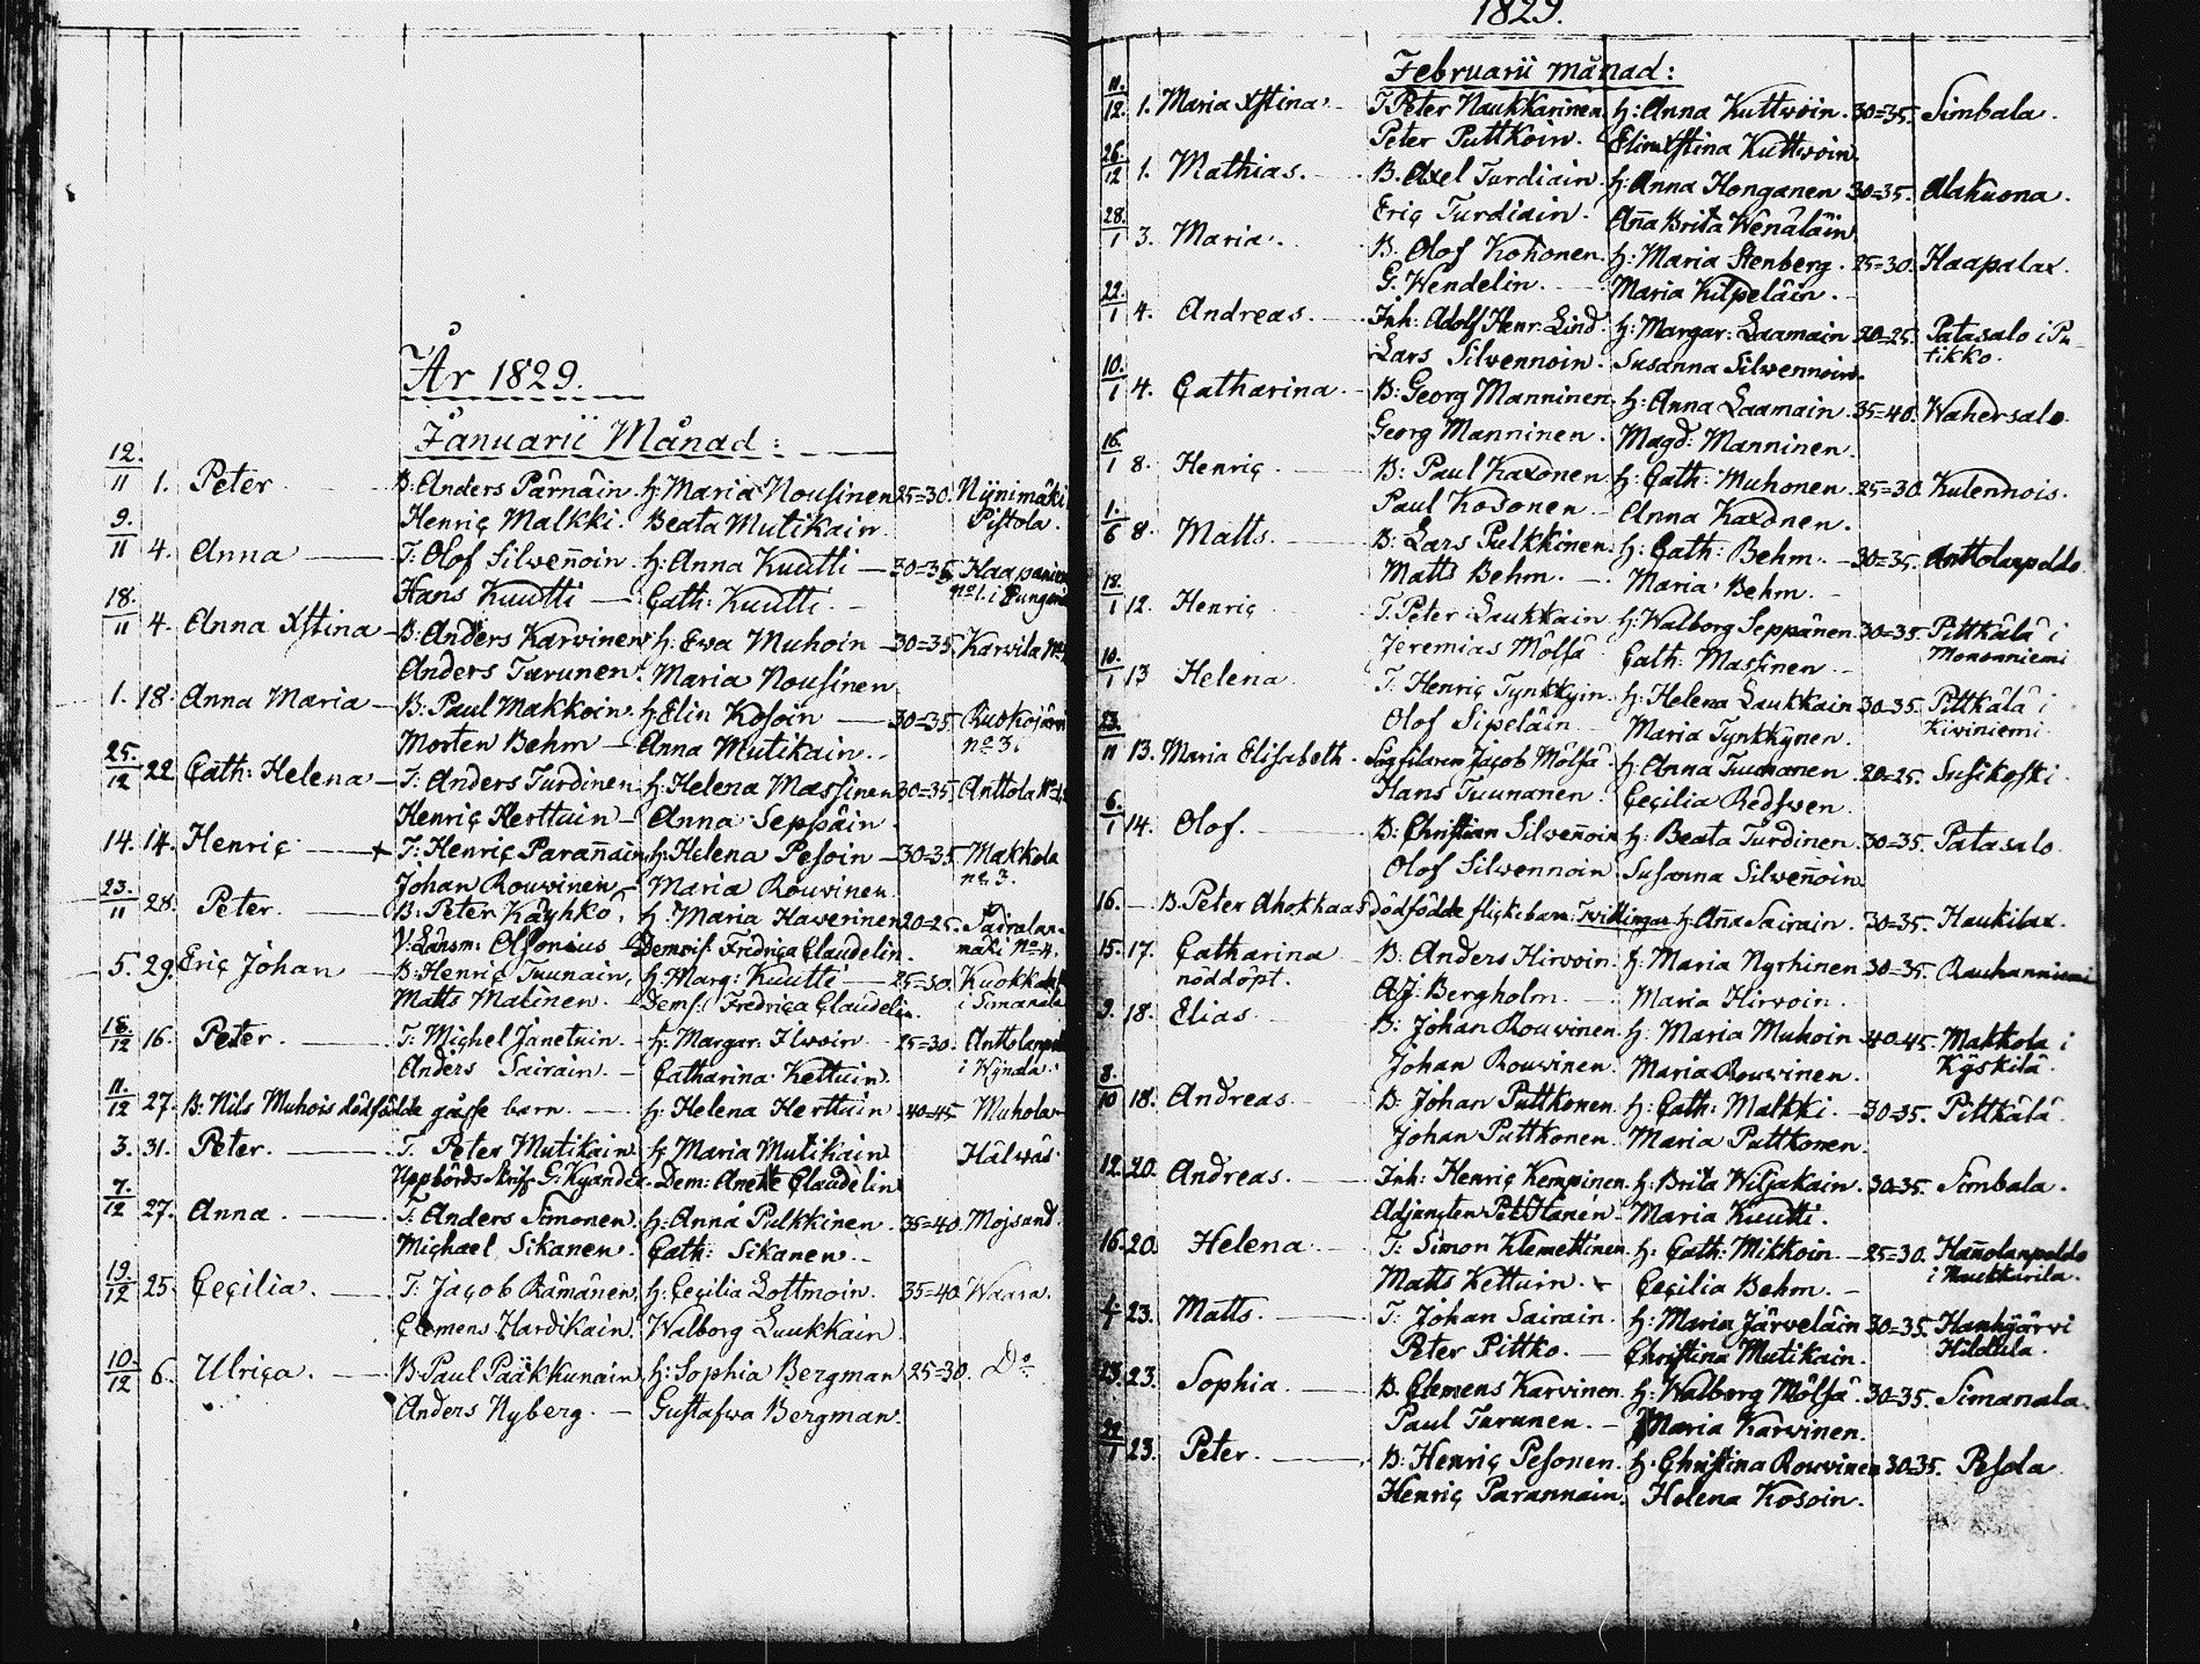 År 1829.
Januarii Månad:
12./11 1. Peter B: Anders Pärnäin. H: Maria Nousinen 25=30. Nÿnimäki
Henric Malkki. Beata Mutikain Pistola.
9./11 4. Anna T: Olof Silwen̄oin. H: Anna Kuutti 30=35. Haapaniem
Hans Kuutti Cath: Kuutti. No 1. i Pungari
18./11 4. Anna Xstina B: Anders Karwinen H: Ewa Muhoin 30=35. Karwila No
Anders Turunen. Maria Nousinen
1. 18. Anna Maria B: Paul Makkoin. H: Elin Kosoin 30=35. Ruokojärvi
Morten Behm Anna Mutikain. no 3.
25./12 22 Cath: Helena T: Anders Turdinen H: Helena Massinen 30=35. Anttola No
Henric Herttuin Anna Seppäin
14. 14. Henric + T: Henric Paran̄ain H: Helena Pesoin 30=35. Makkola
Johan Rouvinen Maria Rouvinen no 3.
23./11 28. Peter. B: Peter Käyhkö. H: Maria Hawerinen 20=25. Sairalan
V: Länsm: Olsonius Demois: Fredrica Claudelin. mäki No 4.
5. 29. Eric Johan B: Henric Tuunain, H: Marg: Kuutti 25=30. Kuokka
Matts Malinen. Dems: Fredrica Claudelin. i Simanala
18./12 16. Peter. T: Michel Janetuin. H: Margar: Ilwoin 25=30. Anttolanp
Anders Sairain. Catharina Kettuin. i Wÿnala.
11./12 27. B: Nils Muhois dödfödde gåsse barn. H: Helena Herttuin 40=45 Muhola
3. 31. Peter. T. Peter Mutikain H: Maria Mutikain Hälwäs
Uppbörds Skrif G: Kyander. Dem: Anette Claudelin
7./12 27. Anna. T: Anders Simonen. H: Anna Pulkkinen. 35=40. Mojsund.
Michael Sikanen. Cath: Sikanen.
19./12 25. Cecilia. T: Jacob Rämänen. H: Cecilia Lottmoin. 35=40. Waara.
Clemens Hardikain. Walborg Luukkain
10./12 6. Ulrica. B: Paul Pääkkunain H: Sophia Bergman 25=30. Do
Anders Nyberg. Gustafwa Bergman.
1829.
Februarii Månad:
11./12. 1. Maria Xstina. T. Peter Naukkarinen. H: Anna Kuttwoin. 30=35. Simbala.
Peter Puttkoin. Elin Xstina Kuttwoin.
26./12 1. Mathias. B. Axel Turdiain. H: Anna Honganen 30=35. Alakuona.
Eric Turdiain. An̄a Brita Wenäläin.
28./1 3. Maria. B. Olof Kohonen. H: Maria Stenberg. 25=30. Haapalax.
G. Wendelin. Maria Kilpeläin.
22./1 4. Andreas. Inh: Adolf Henr. Lind. H: Margar: Laamain 20=25. Patasalo i Pu-
Lars Silwennoin. Susanna Silwennoin. tikko.
10./1 4. Catharina B: Georg Manninen. H: Anna Laamain. 35=40. Wahersalo.
Georg Manninen. Magd: Manninen.
16./1 8. Henric. B: Paul Kaxonen. H: Cath: Muhonen. 25=30. Kulennois.
Paul Kosonen Anna Kaxonen.
1./6 8. Matts. B: Lars Pulkkinen. H: Cath: Behm. 30=35. Anttolanpeldo
Matts Behm. Maria Behm.
18./1 12. Henric T. Peter Laukkain. H: Walborg Seppänen. 30=35. Pittkälä i
Jeremias Mölsä Cath: Massinen Mononniemi
10./1 13 Helena. T. Henric Tynkkyin. H: Helena Laukkain 30=35. Pittkälä i
Olof Sipeläin Maria Tynkkÿnen. Kiviniemi
23./11 13. Maria Elisabeth. Sågfilaren Jacob Mölsä. H: Anna Tuunanen. 20=25. Susikoski
Hans Tuunanen. Cecilia Redswen.
6./1 14. Olof. B: Christian Silwen̄oin H: Beata Turdinen. 30=35. Patasalo.
Olof Silwennoin. Susanna Silwen̄oin.
16. B. Peter Ahokkaas dödfödde flickebarn Twillingar H: An̄a Sairain. 30=35. Haukilax.
15. 17. Catharina B: Anders Hirvoin. H: Maria Nyrhinen 30=35. Rauhanniemi
nöddöpt. A.J. Bergholm. Maria Hirvoin.
9. 18. Elias B: Johan Rouvinen. H: Maria Muhoin 40=45. Makkola i
Johan Rouvinen. Maria Rouvinen. Kÿskilä.
8./10 18. Andreas B: Johan Puttkonen H: Cath: Malkki. 30=35. Pittkälä.
Johan Puttkonen. Maria Puttkonen.
12. 20. Andreas. Inh: Henric Kempinen. H: Brita Wiljakain. 30=35. Simbala.
Adjuncten Pet: Hanén Maria Kuutti.
16. 20. Helena T: Simon Klemettinen H: Cath: Mikkoin. 25=30. Han̄olanpeldo
Matts Kettuin. Cecilia Behm. i Naukkarila.
4./1 23. Matts. T: Johan Sairain. H: Maria Järveläin 30=35. Hanhijärvi
Peter Pittko. Christina Mutikain. Hildula.
23. 23. Sophia. B. Clemens Karvinen. H: Walborg Mölsä. 30=35. Simanala.
Paul Turunen. Maria Karvinen.
22./1 23. Peter. B: Henric Pesonen. H: Christina Rouvinen 30=35. Pesola.
Henric Parannain. Helena Kosoin.